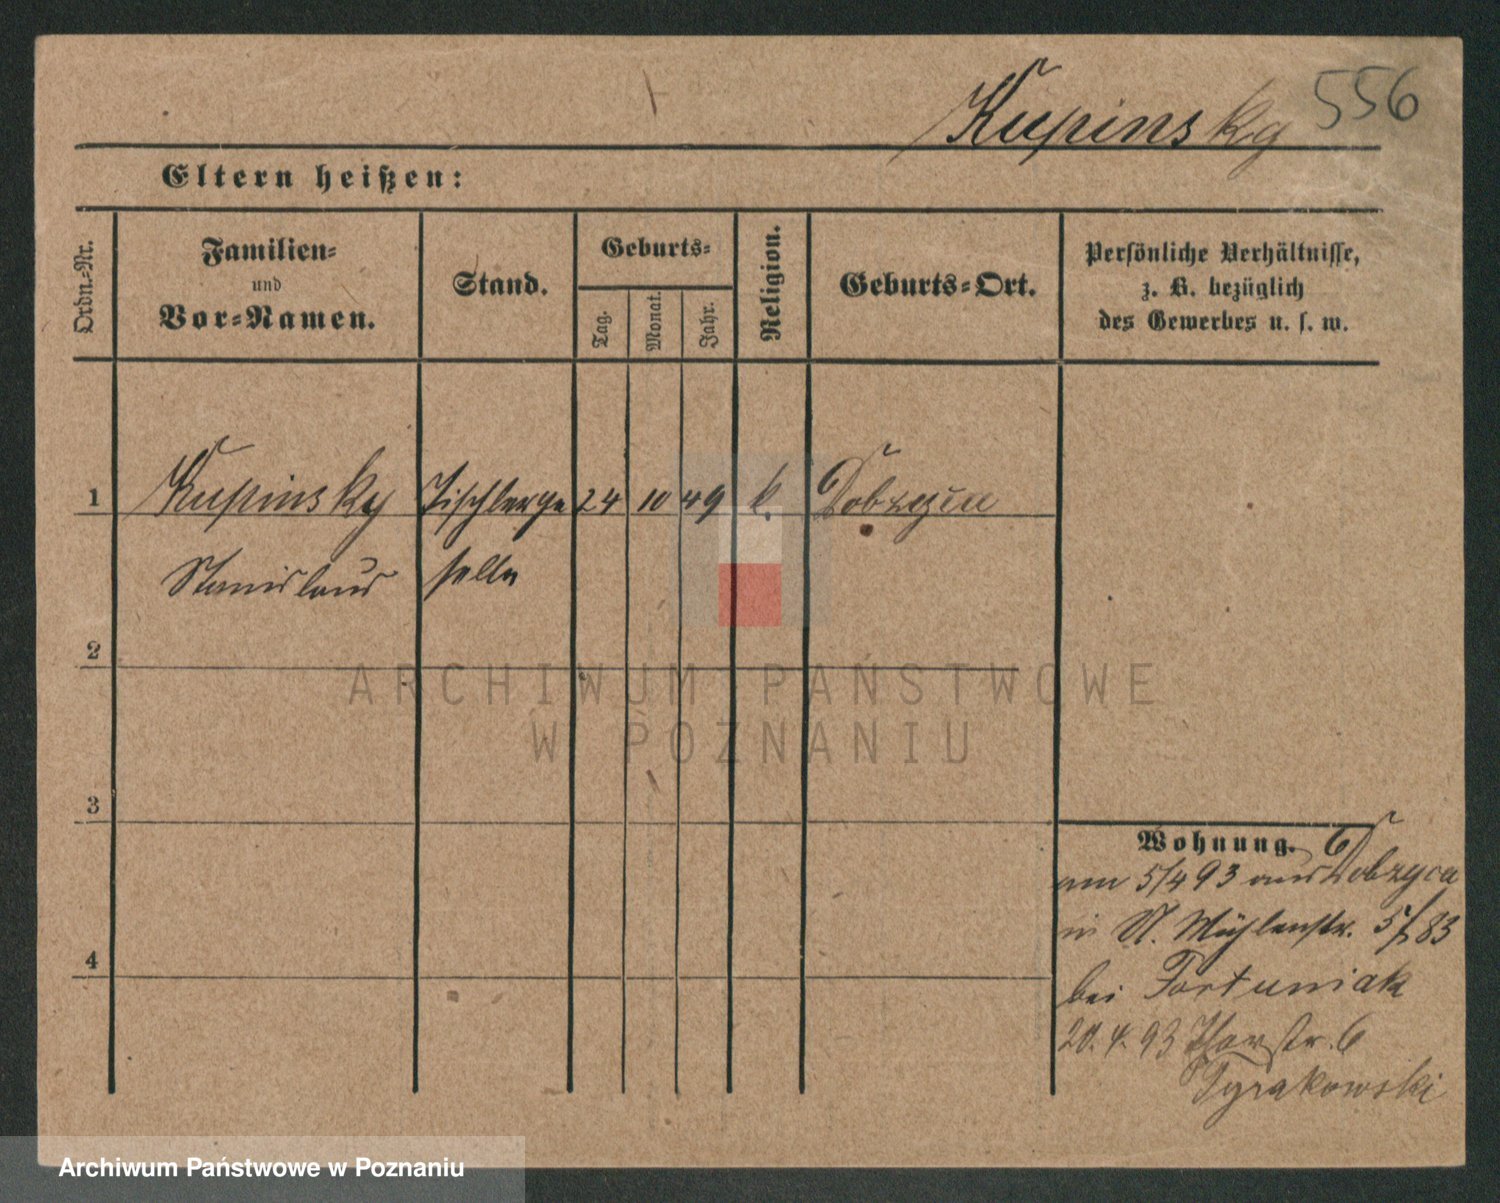 Kupinsky 556
Eltern heißen:
Ordn.-Nr.
Familien-
und
Vor-Namen.
Stand.
Geburts-
Tag.
Monat.
Jahr.
Religion.
Geburts-Ort.
Persönliche Verhältnisse,
z. B. bezüglich
des Gewerbes u. s. w.
1 Kupinsky Tischlerge 24 10 49 k. Dobzyca
Stanislaus selle
2
ARCHIWUM PAŃSTWOWE
W POZNANIU
3
Wohnung.
am 5/4 93 aus Dobzyca
in St. Mühlenstr. 5/ 83
bei Fortuniak
20. 4. 93 Thorstr. 6
Tyrakowski
4
Archiwum Państwowe w Poznaniu